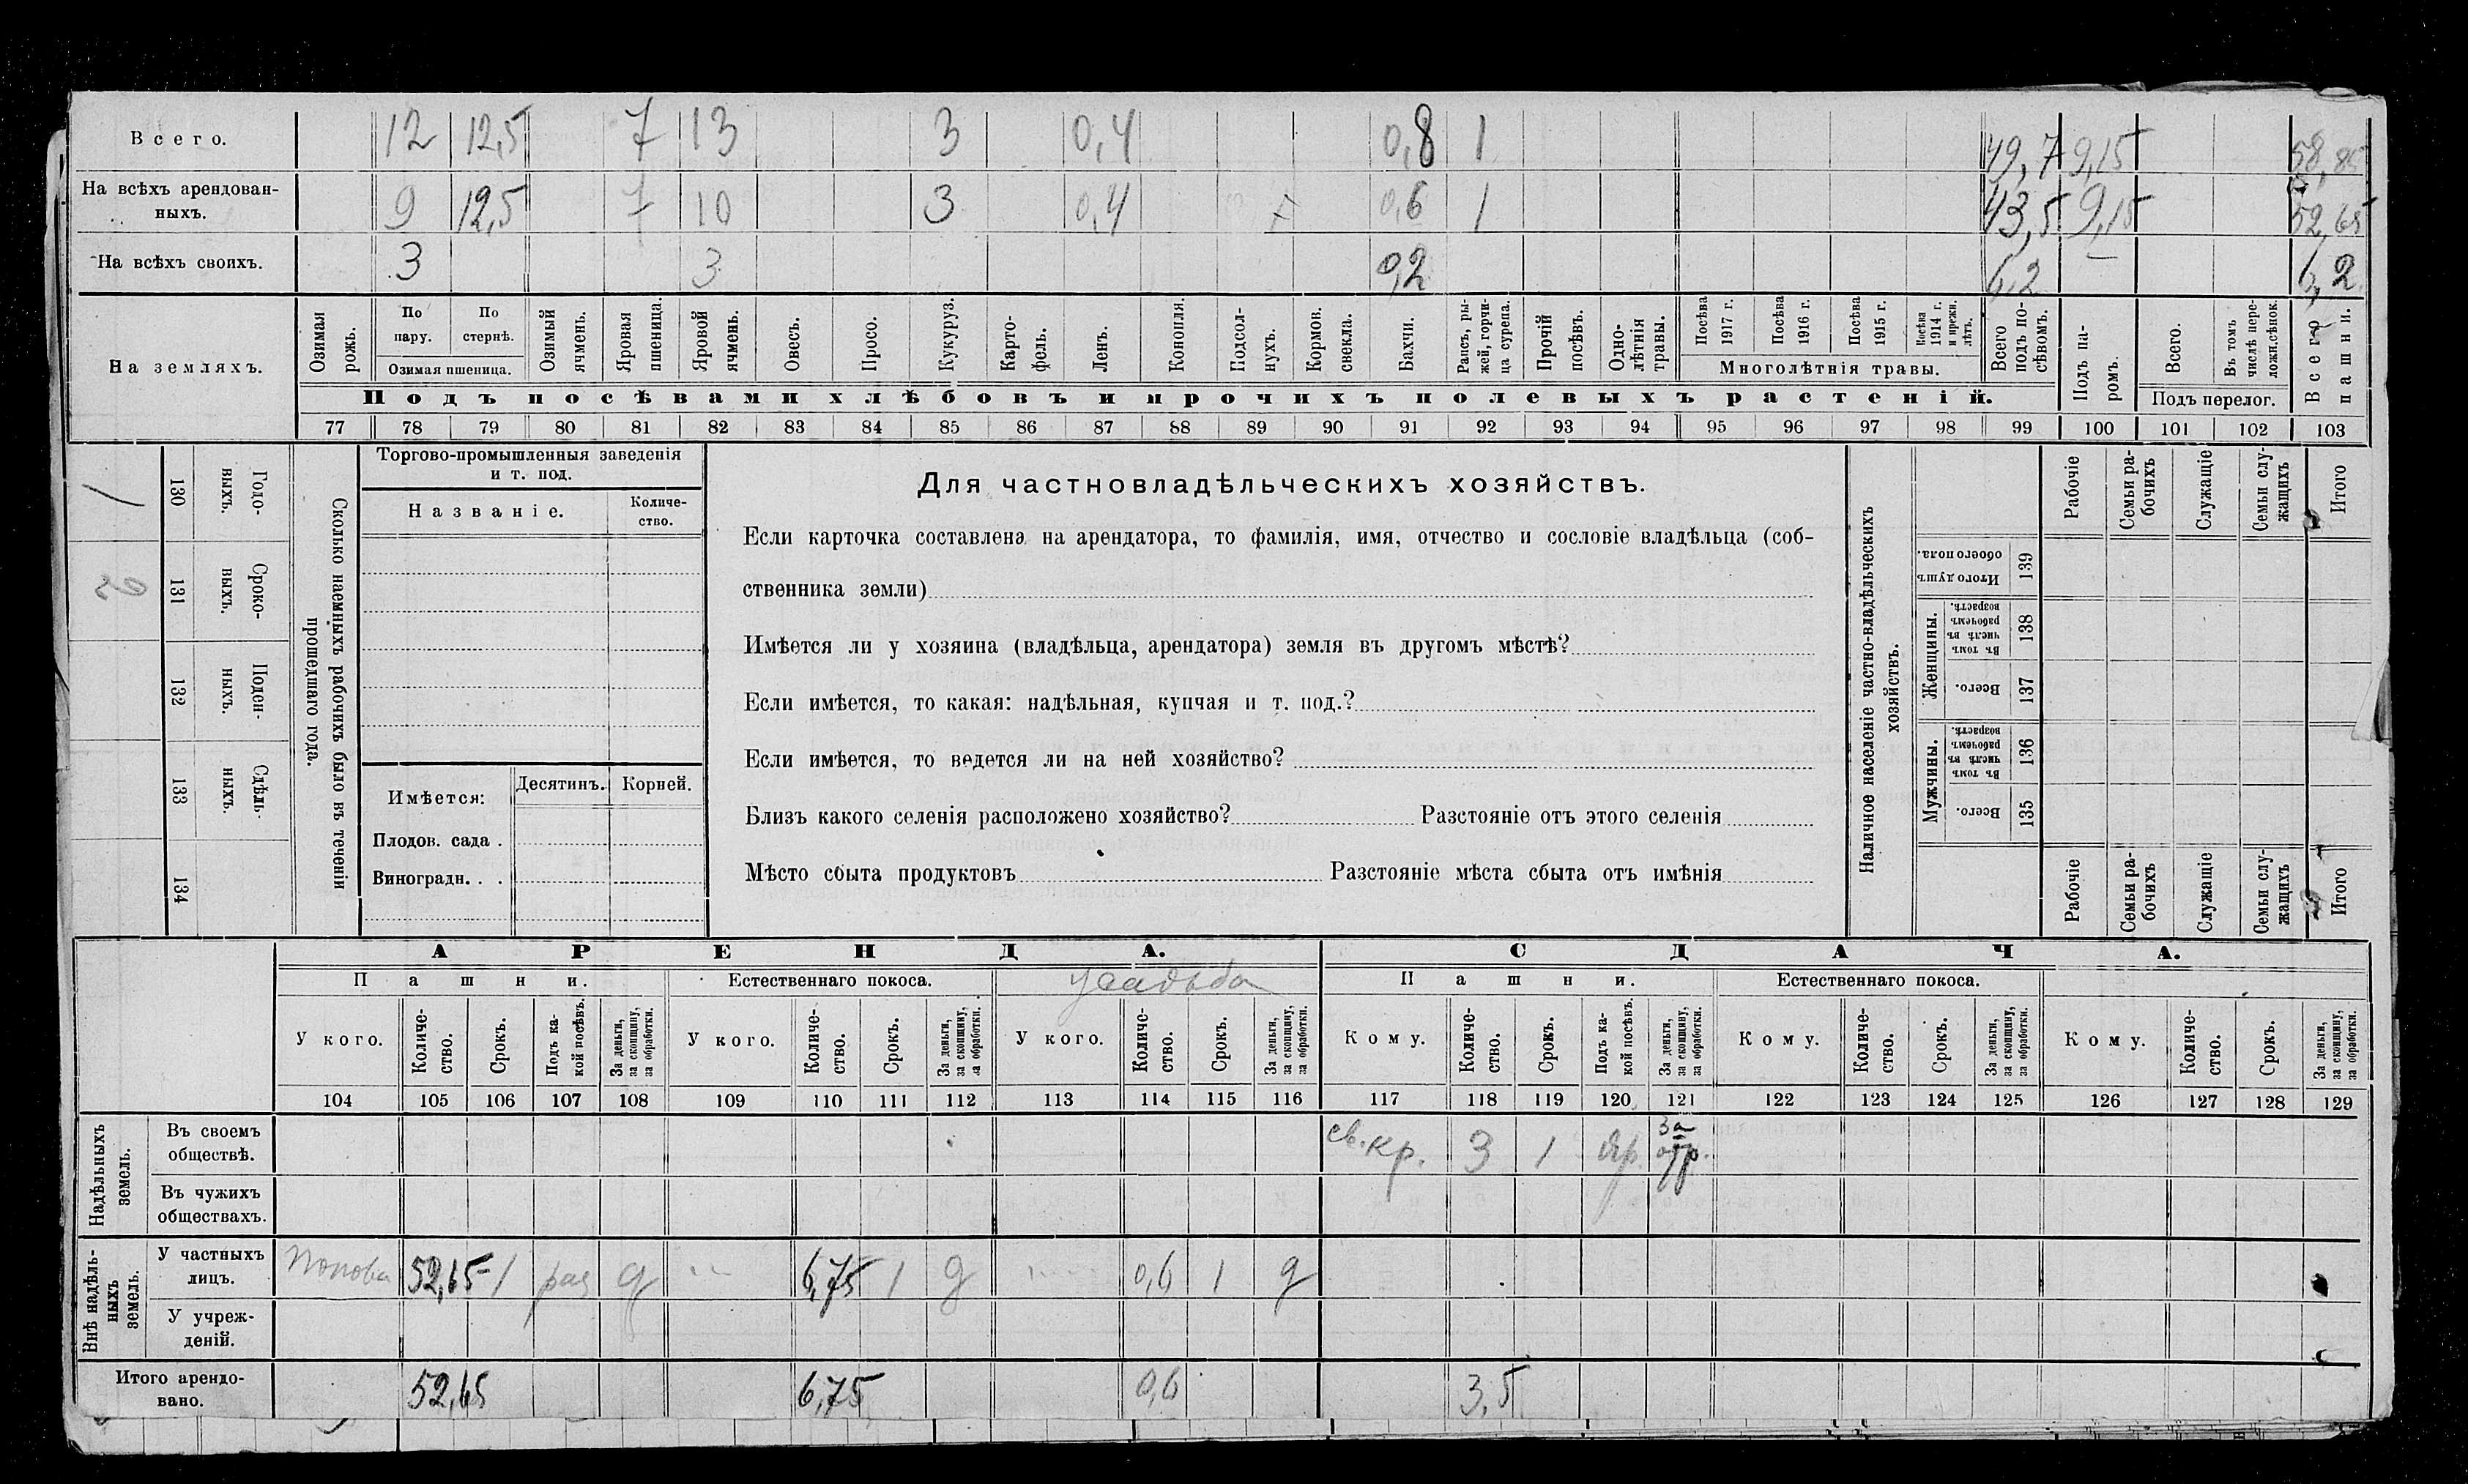 Всего. 12 12,5 7 13 3 0,4 0,8 1 49,7 9,15 58,85
На всѣхъ арендован-
ныхъ. 9 12,5 7 10 3 0,4 0,6 1 43,5 9,15 52,65
На всѣхъ своихъ. 3 3 0,2 6,2 — 6,2
На земляхъ.
Озимая рожь.
По пару.
По стернѣ.
Озимая пшеница.
Озимый ячмень.
Яровая пшеница.
Яровой ячмень.
Овесъ.
Просо.
Кукуруз.
Карто-
фель.
Ленъ.
Конопля.
Подсол-
нухъ.
Кормов. свекла.
Бахчи.
Рапсъ, ры-
жей, горчи-
ца сурепа.
Прочій посѣвъ.
Одно-
лѣтнія травы.
Посѣва 1917 г.
Посѣва 1916 г.
Посѣва 1915 г.
Посѣва 1914 г. и прежн. лѣтъ.
Многолѣтнія травы.
Всего подъ по-
сѣвомъ.
Подъ па-
ромъ.
Всего.
Въ томъ числѣ пере-
ложн.сѣнок.
Подъ перелог.
Всего пашни.
Подъ посѣвами хлѣбовъ и прочихъ полевыхъ растеній.
77 78 79 80 81 82 83 84 85 86 87 88 89 90 91 92 93 94 95 96 97 98 99 100 101 102 103
Сколько наемныхъ рабочихъ было въ теченіи
прошедшаго года.
Годо-
выхъ.
130
Сроко-
выхъ.
131
Поден-
ныхъ.
132
Сдѣль-
ныхъ.
133
134
Торгово-промышленныя заведенія
и т. под.
Названіе.
Количе-
ство.
Имѣется:
Десятинъ. Корней.
Плодов. сада .
Виноградн. . .
Для частновладѣльческихъ хозяйствъ.
Если карточка составлена на арендатора, то фамилія, имя, отчество и сословіе владѣльца (соб-
ственника земли)
Имѣется ли у хозяина (владѣльца, арендатора) земля въ другомъ мѣстѣ?
Если имѣется, то какая: надѣльная, купчая и т. под.?
Если имѣется, то ведется ли на ней хозяйство?
Близъ какого селенія расположено хозяйство? Разстояніе отъ этого селенія
Мѣсто сбыта продуктовъ Разстояніе мѣста сбыта отъ имѣнія
Наличное населеніе частно-владѣльческихъ
хозяйствъ.
Рабочіе
Семьи ра-
бочихъ
Служащіе
Семьи слу-
жащихъ
Итого
Итого душъ обоего пола.
139
Женщины.
Въ томъ числѣ въ рабочемъ возрастѣ.
138
Всего.
137
Мужчины.
Въ томъ числѣ въ рабочемъ возрастѣ.
136
Всего.
135
Рабочіе
Семьи ра-
бочихъ
Служащіе
Семьи слу-
жащихъ
Итого
АРЕНДА. СДАЧА.
Пашни. Естественнаго покоса. усадьба Пашни. Естественнаго покоса.
У кого.
Количе-
ство.
Срокъ.
Подъ ка-
кой посѣвъ.
За деньги, за скопщину, за обработки.
У кого.
Количе-
ство.
Срокъ.
За деньги, за скопщину, за обработки.
У кого.
Количе-
ство.
Срокъ.
За деньги, за скопщину, за обработки.
Кому.
Количе-
ство.
Срокъ.
Подъ ка-
кой посѣвъ.
За деньги, за скопщину, за обработки.
Кому.
Количе-
ство.
Срокъ.
За деньги, за скопщину, за обработки.
Кому.
Количе-
ство.
Срокъ.
За деньги, за скопщину, за обработки.
104 105 106 107 108 109 110 111 112 113 114 115 116 117 118 119 120 121 122 123 124 125 126 127 128 129
Надѣльныхъ
земель.
Въ своемъ
обществѣ. св. кр. 3 1 яр. за обр.
Въ чужихъ
обществахъ.
Внѣ надѣль-
ныхъ
земель.
У частныхъ
лицъ. Попова 52,65 1 раз д 6,75 1 д 0,6 1 д
У учреж-
деній.
Итого арендо-
вано. 52,65 6,75 0,6 3,5